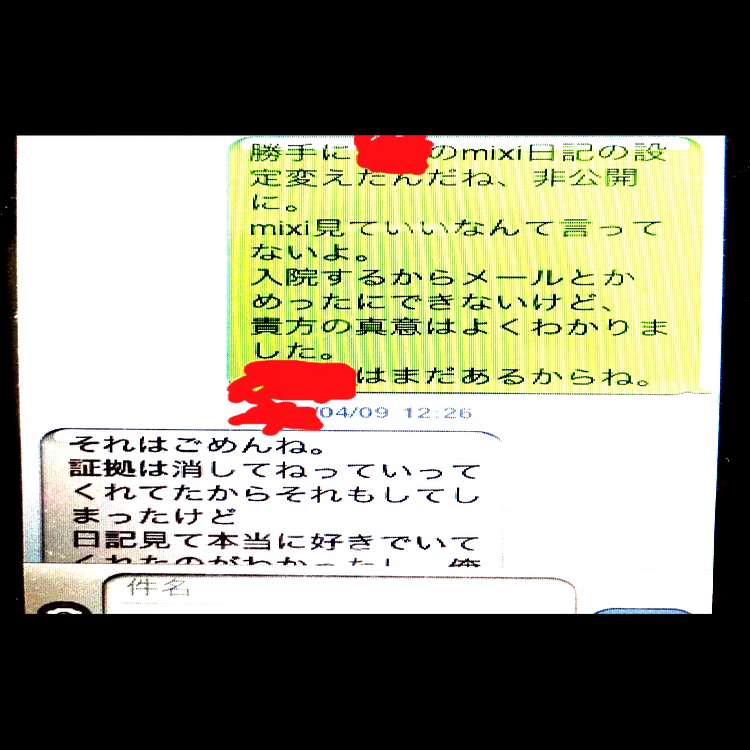 勝手に
のmixi日記の設
定変えたんだね、非公開
に。
mixi見ていいなんて言って
ないよ。
入院するからメールとか
めったにできないけど、
貴方の真意はよくわかりま
した。
はまだあるからね。
/04/09 12:26
それはごめんね。
証拠は消してねっていって
くれてたからそれもしてし
まったけど
日記見て本当に好きでいて
くれたのがわかったし、俺
件名